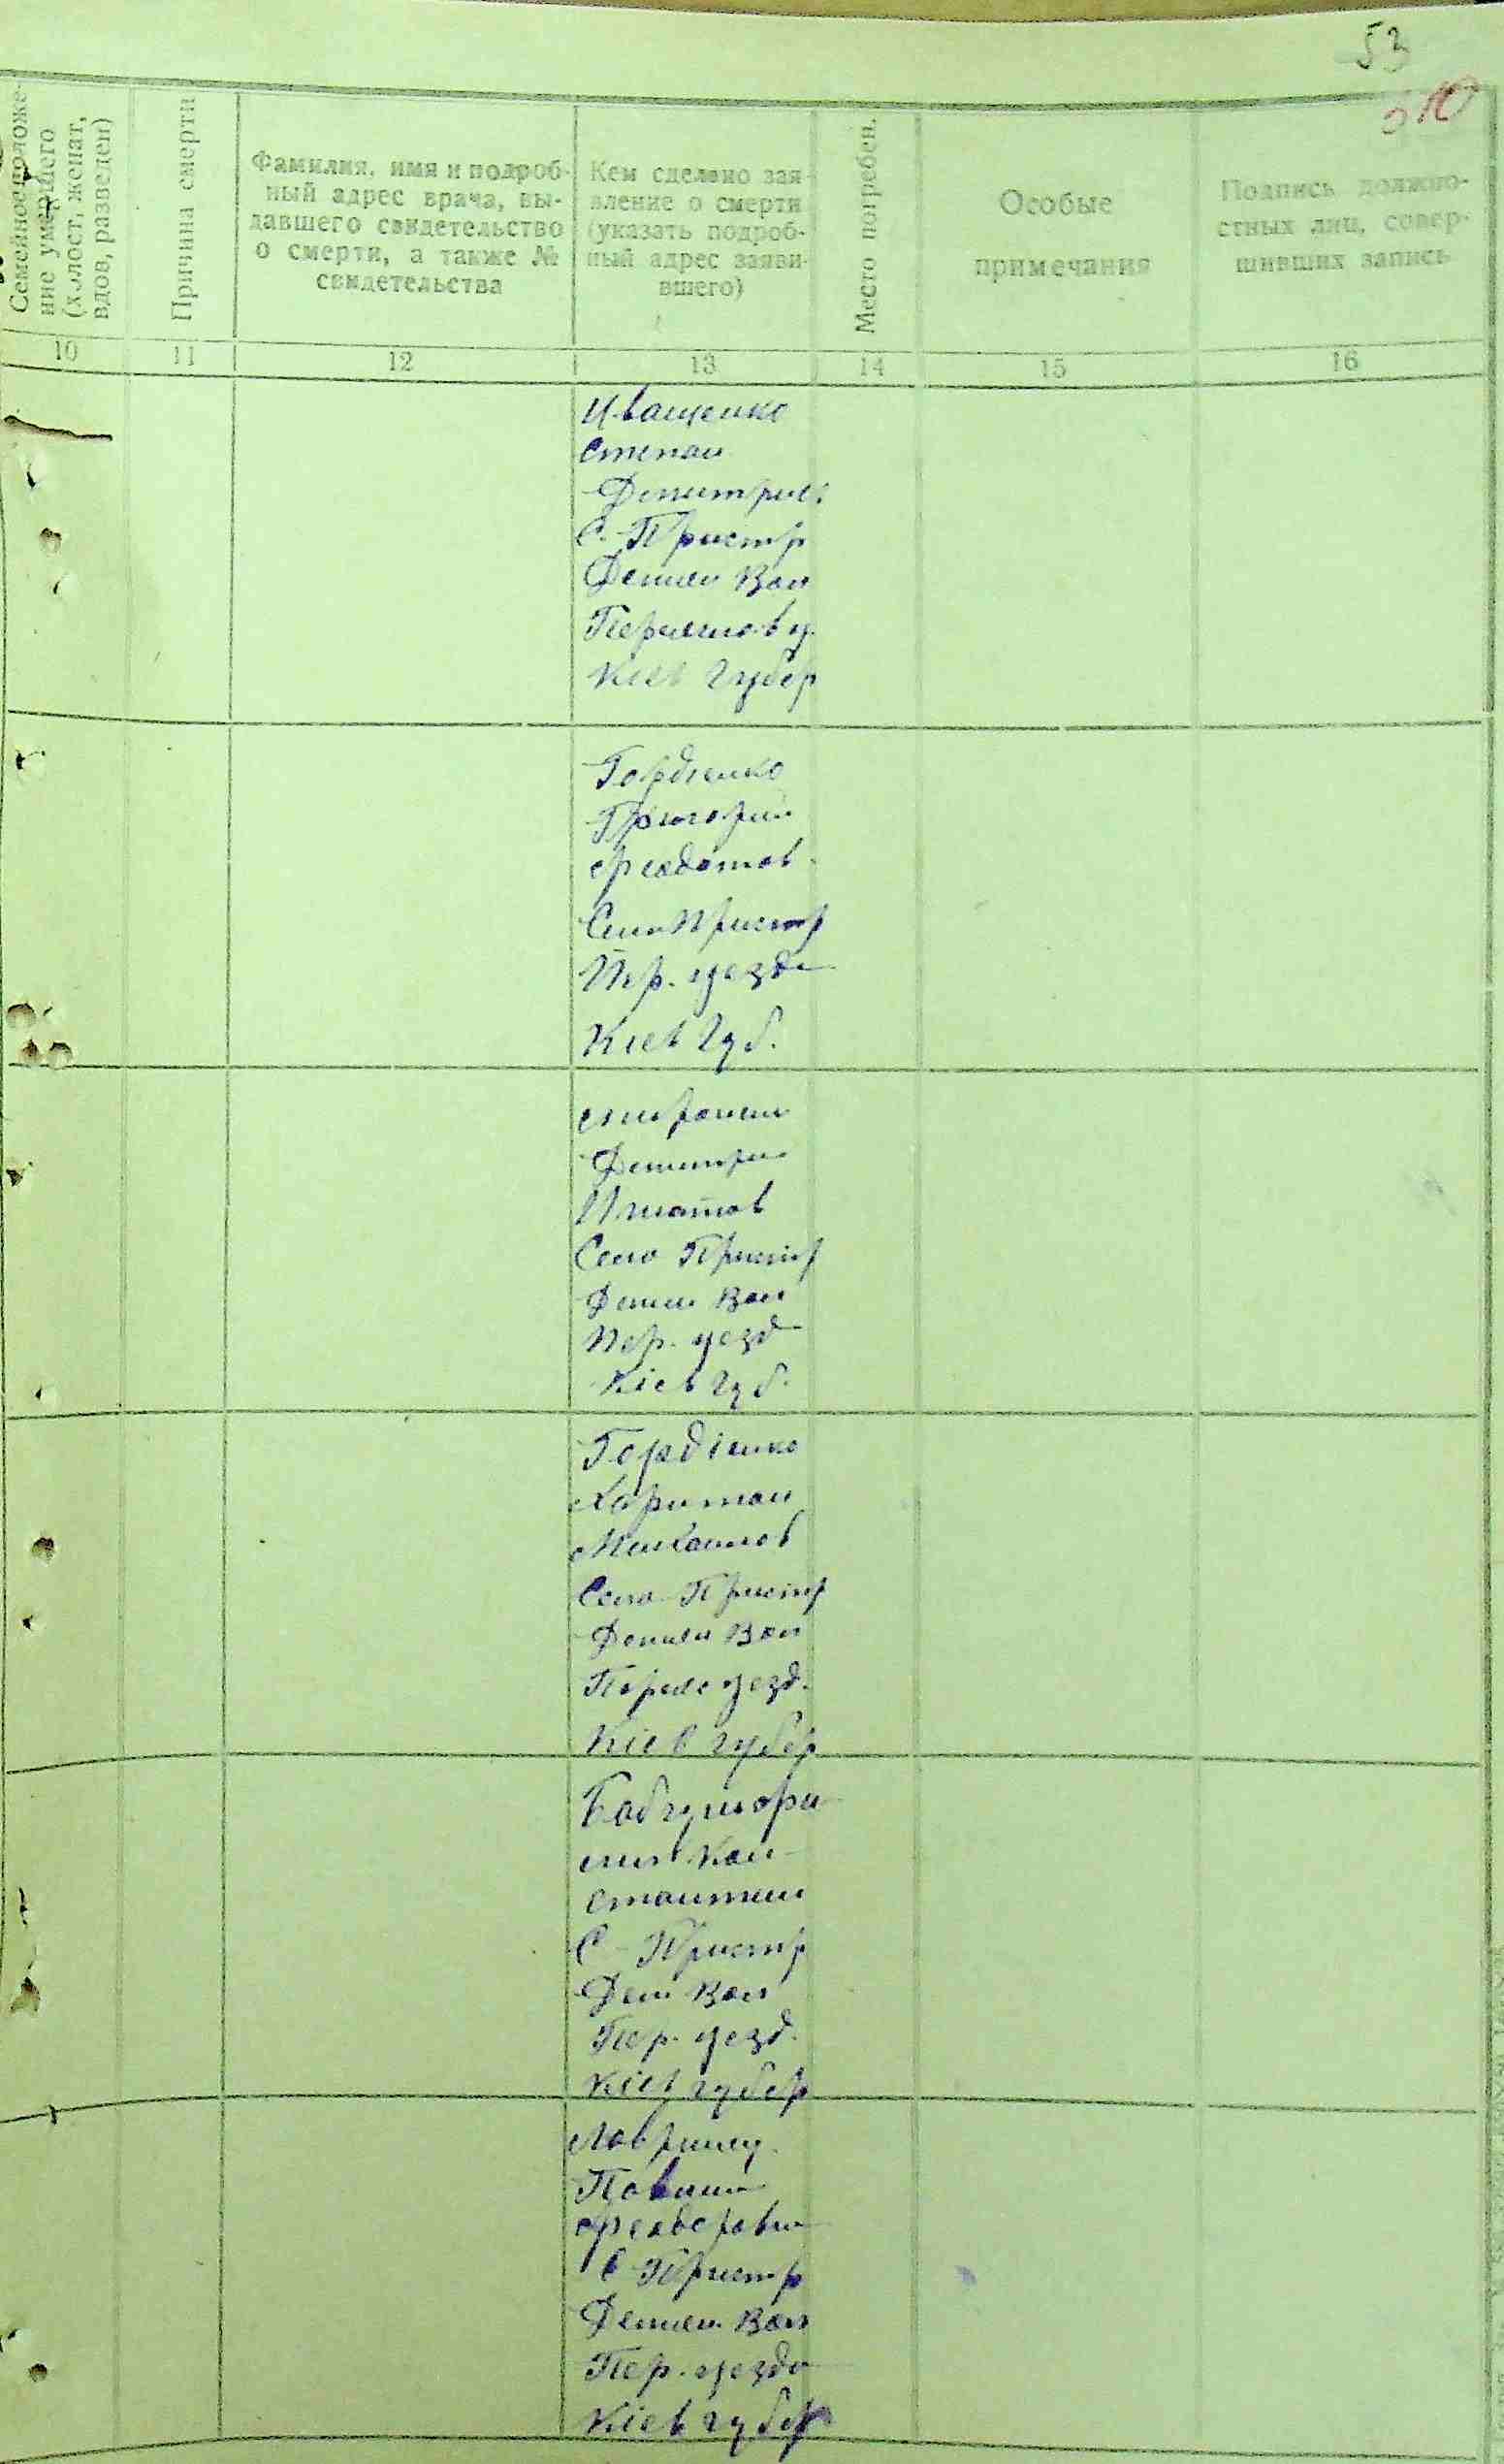 53
Семейное положе-
ние умершего
(холост, женат,
вдов, разведен)
Причина смерти
Фамилия, имя и подроб-
ный адрес врача, вы-
давшего свидетельство
о смерти, а также №
свидетельства
Кем сделано зая-
вление о смерти
(указать подроб-
ный адрес заяви-
вшего)
Место погребен.
Особые
примечания
Подпись должно-
стных лиц, совер-
шивших запись
10 11 12 13 14 15 16
Иващенко
Степан
Дмитрие
С. Пристр
Демян Вол
Киев губер
Гордіенко
Григорий
Федотов
Село Пристр
Пер. уезда
Кіев Губ.
Дмитри
Игнатов
Село Пристр
Демян Вол
Пер. уезд
Кіев губ.
Гордіенко
Харитон
Михаилов
Село Пристр
Демян Вол
уезд.
Кіев губер
Кон-
стантин
С Пристр
Дем Вол
Пер. уезд.
Кіев губер
Лавринец
Павел
С Пристр
Демян Вол
Пер. уезда
Кіев губер